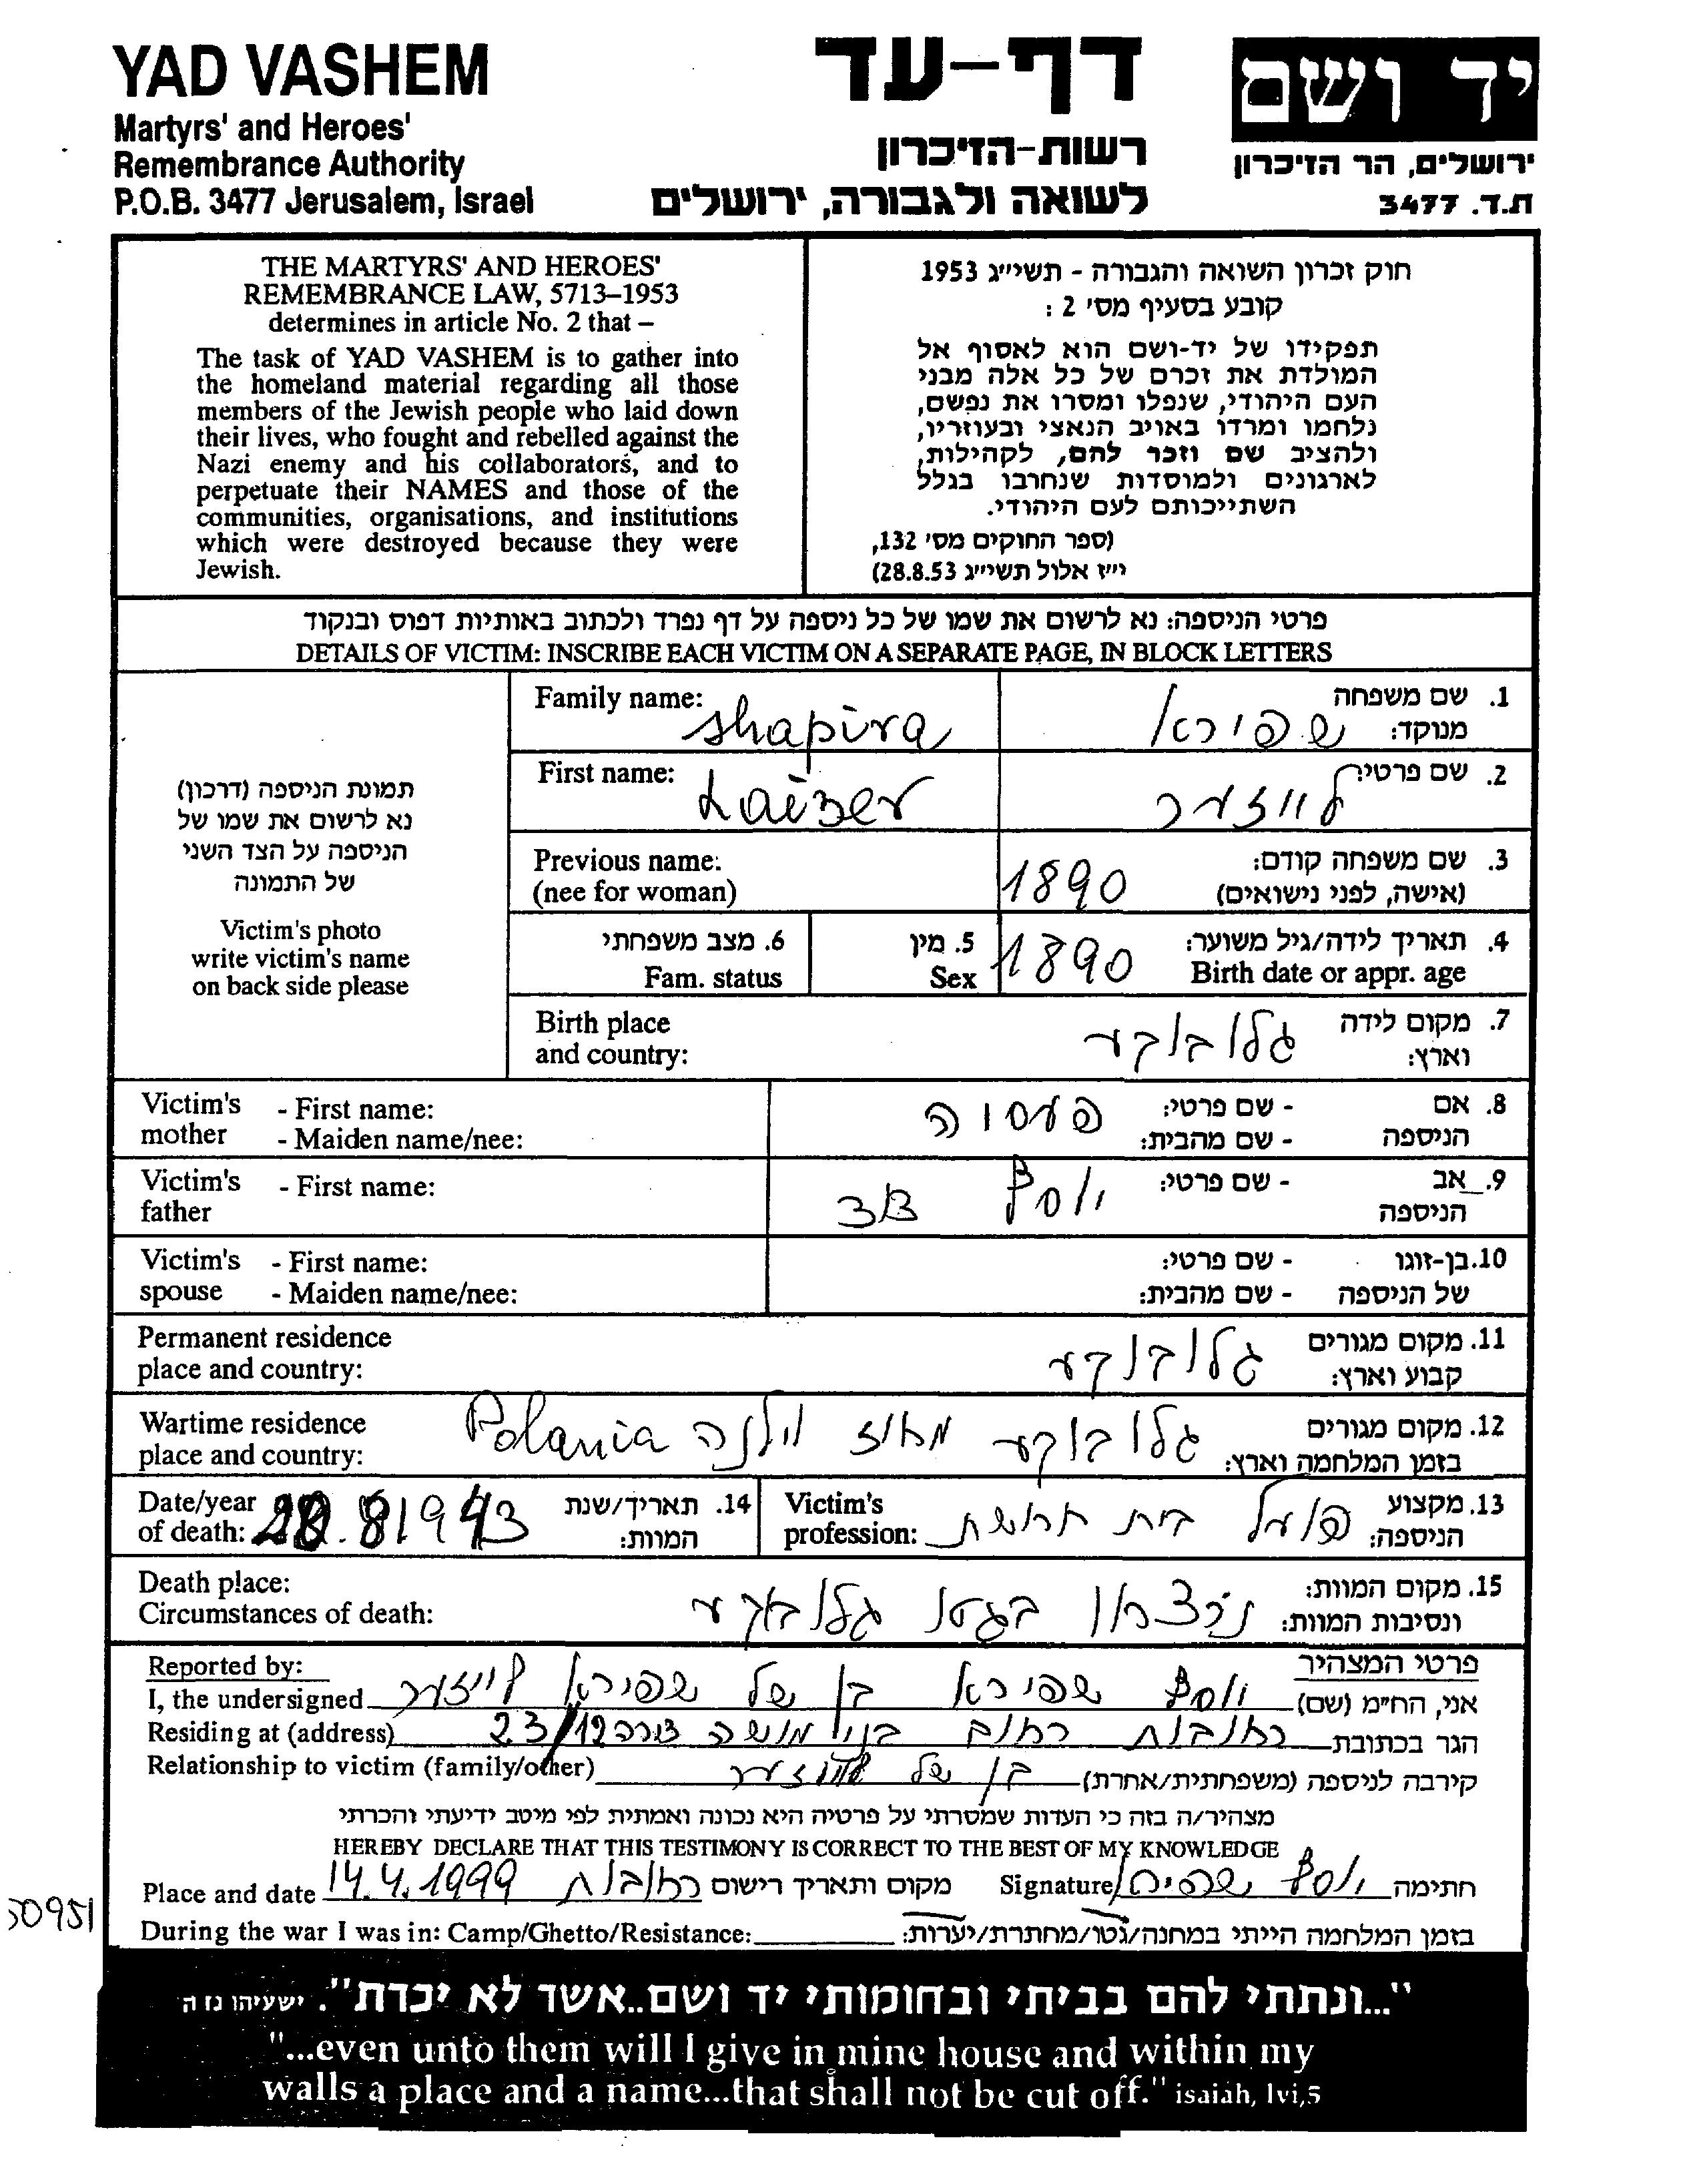 YAD VASHEM
Martyrs' and Heroes'
Remembrance Authority
P.O.B. 3477 Jerusalem, Israel
דף-עד
רשות-הזיכרון
לשואה ולגבורה, ירושלים
יד ושם
ירושלים, הר הזיכרון
ת.ד. 3477
THE MARTYRS' AND HEROES'
REMEMBRANCE LAW, 5713–1953
determines in article No. 2 that –
The task of YAD VASHEM is to gather into
the homeland material regarding all those
members of the Jewish people who laid down
their lives, who fought and rebelled against the
Nazi enemy and his collaborators, and to
perpetuate their NAMES and those of the
communities, organisations, and institutions
which were destroyed because they were
Jewish.
חוק זכרון השואה והגבורה - תשי״ג 1953
קובע בסעיף מס׳ 2 :
תפקידו של יד-ושם הוא לאסוף אל
המולדת את זכרם של כל אלה מבני
העם היהודי, שנפלו ומסרו את נפשם,
נלחמו ומרדו באויב הנאצי ובעוזריו,
ולהציב שם וזכר להם, לקהילות,
לארגונים ולמוסדות שנחרבו בגלל
השתייכותם לעם היהודי.
(ספר החוקים מס׳ 132,
י״ז אלול תשי״ג 28.8.53)
פרטי הניספה: נא לרשום את שמו של כל ניספה על דף נפרד ולכתוב באותיות דפוס ובנקוד
DETAILS OF VICTIM: INSCRIBE EACH VICTIM ON A SEPARATE PAGE, IN BLOCK LETTERS
תמונת הניספה (דרכון)
נא לרשום את שמו של
הניספה על הצד השני
של התמונה
Victim's photo
write victim's name
on back side please
Family name: shapira
1. שם משפחה מנוקד: שפירא
First name: Laizer
2. שם פרטי: לייזער
Previous name:
(nee for woman)
3. שם משפחה קודם:
(אישה, לפני נישואים) 1890
6. מצב משפחתי
Fam. status
5. מין
Sex
4. תאריך לידה/גיל משוער:
Birth date or appr. age 1890
Birth place
and country:
7. מקום לידה
וארץ: גלובוקע
Victim's mother - First name:
- Maiden name/nee:
8. אם הניספה - שם פרטי: פעסיה
- שם מהבית:
Victim's father - First name:
9. אב הניספה - שם פרטי: יוסף
Victim's spouse - First name:
- Maiden name/nee:
10. בן-זוגו של הניספה - שם פרטי:
- שם מהבית:
Permanent residence
place and country:
11. מקום מגורים
קבוע וארץ: גלובוקע
Wartime residence
place and country:
12. מקום מגורים
בזמן המלחמה וארץ: גלובוקע מחוז וילנה Polania
Date/year
of death:
14. תאריך/שנת
המוות: 20.8 1943
Victim's
profession:
13. מקצוע
הניספה: פועל בית חרושת
Death place:
Circumstances of death:
15. מקום המוות:
ונסיבות המוות: נרצח בגטו גלובוקע
Reported by:
פרטי המצהיר
I, the undersigned
אני, הח״מ (שם) יוסף שפירא בן של שפירא לייזער
Residing at (address)
הגר בכתובת רחובות רחוב בני משה 23/12
Relationship to victim (family/other)
קירבה לניספה (משפחתית/אחרת) בן של לייזער
מצהיר/ה בזה כי העדות שמסרתי על פרטיה היא נכונה ואמתית לפי מיטב ידיעתי והכרתי
HEREBY DECLARE THAT THIS TESTIMONY IS CORRECT TO THE BEST OF MY KNOWLEDGE
Place and date 14.4.1999 רחובות מקום ותאריך רישום
Signature יוסף שפירא חתימה
50951
During the war I was in: Camp/Ghetto/Resistance:
בזמן המלחמה הייתי במחנה/גטו/מחתרת/יערות:
"...ונתתי להם בביתי ובחומותי יד ושם..אשר לא יכרת". ישעיהו נו ה
"...even unto them will I give in mine house and within my
walls a place and a name...that shall not be cut off." isaiah, lvi,5